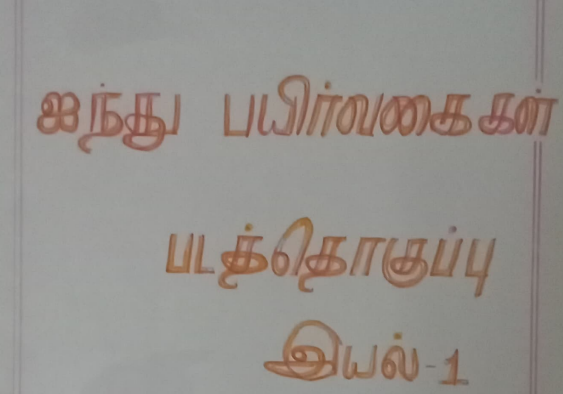 ஐந்து பயிர்வகைகள்
படத்தொகுப்பு
இயல்-1